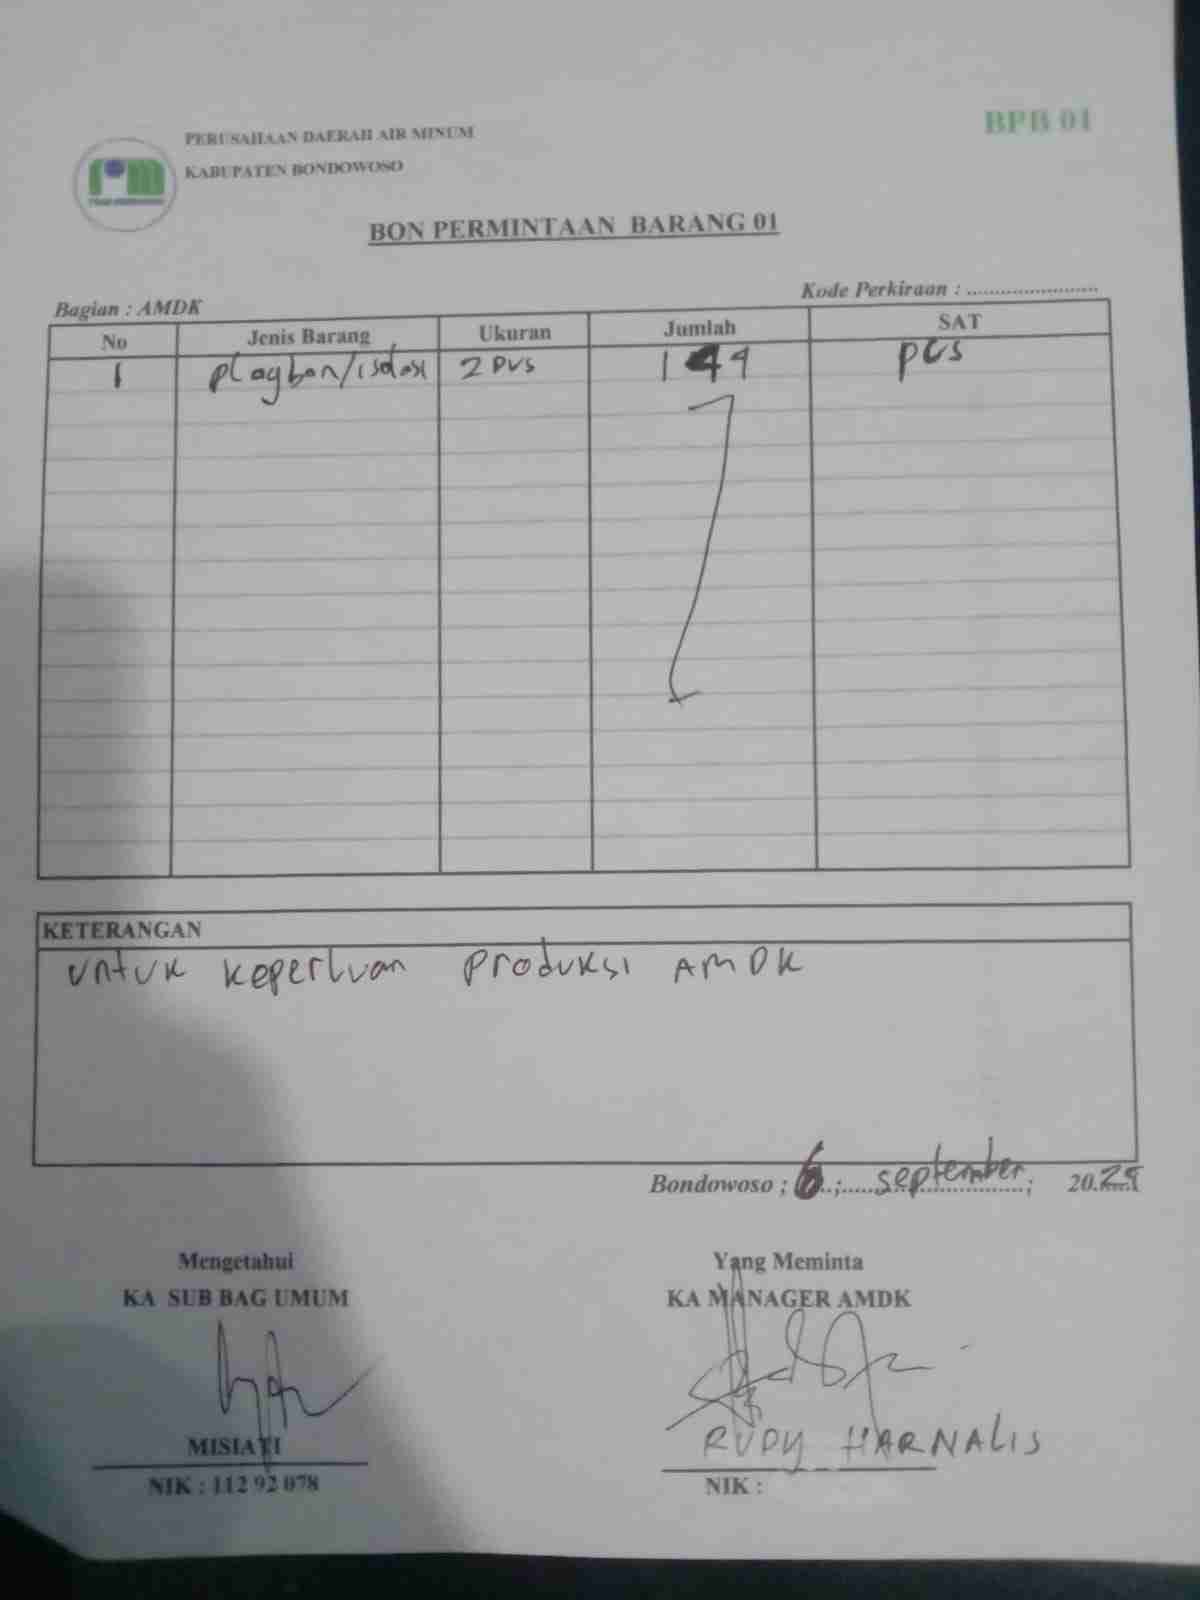 BPB 01
PERUSAHAAN DAERAH AIR MINUM
KABUPATEN BONDOWOSO
BON PERMINTAAN BARANG 01
Bagian : AMDK
Kode Perkiraan : ........................
No Jenis Barang Ukuran Jumlah SAT
1 plagban/isolasi 2 Dus 144 pcs
KETERANGAN
untuk keperluan produksi AMDK
Bondowoso ; 6 ; september ; 2024
Mengetahui
KA SUB BAG UMUM
MISIATI
NIK : 112 92 078
Yang Meminta
KA MANAGER AMDK
RUDY HARNALIS
NIK :